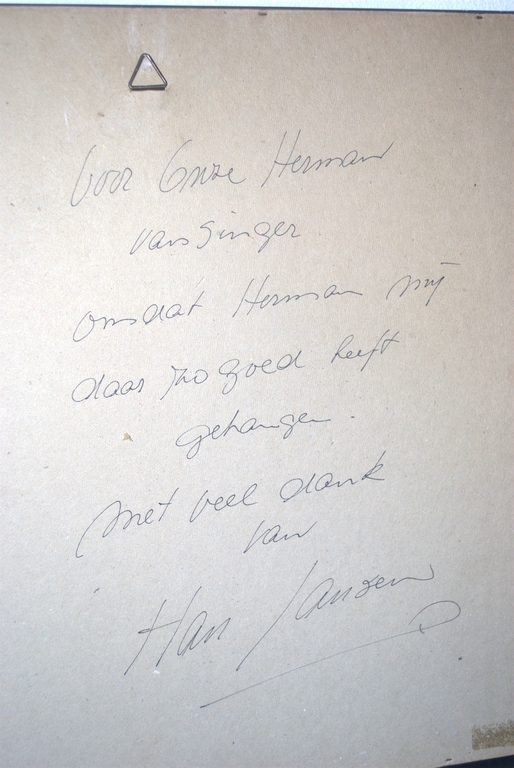 Voor Onze Herman
van Singer
omdat Herman mij
daar zo goed heeft
gehangen.
met veel dank
van
Han Jansen